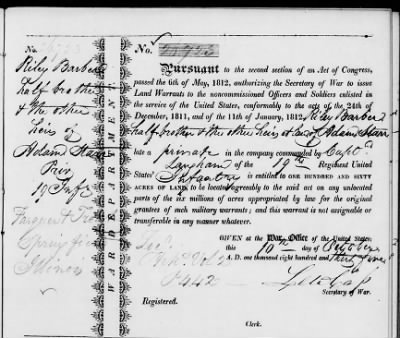 No.
Riley Barber
half brother
& the other
heirs of
Adam Starr
19 Inf
Illinois
WAR DEPARTMENT
No.
PURSUANT to the second section of an Act of Congress,
passed the 6th of May, 1812, authorizing the Secretary of War to issue
Land Warrants to the noncommissioned Officers and Soldiers enlisted in
the service of the United States, conformably to the acts of the 24th of
December, 1811, and of the 11th of January, 1812, Riley Barber
half brother & the other heirs at law of Adam Starr
late a private in the company commanded by Capt
Langham of the 19th Regiment United
States' Infantry is entitled to ONE HUNDRED AND SIXTY
ACRES OF LAND, to be located agreeably to the said act on any unlocated
parts of the six millions of acres appropriated by law for the original
grantees of such military warrants; and this warrant is not assignable
or transferable in any manner whatever.
GIVEN at the War Office of the United States,
this 10th day of
A. D. one thousand eight hundred and thirty
Vol 2
P 442
Lew Cass
Secretary of War.
Registered.
Clerk.